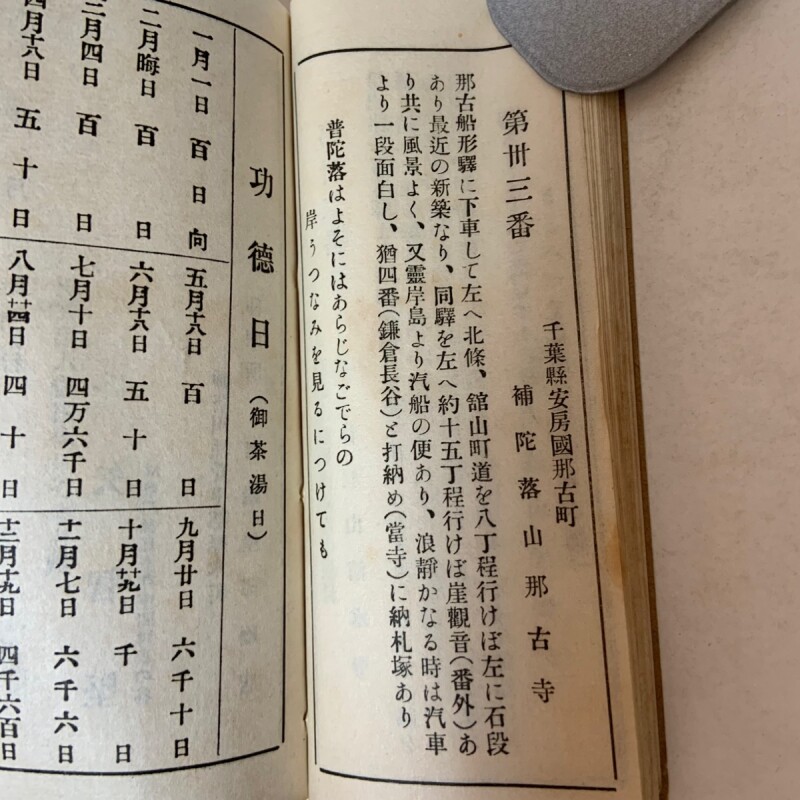 第卅三番
千葉縣安房國那古町
補陀落山那古寺
那古船形驛に下車して左へ北條、舘山町道を八丁程行けば左に石段
あり最近の新築なり、同驛を左へ約十五丁程行けば崖觀音(番外)あ
り共に風景よく、又靈岸島より汽船の便あり、浪靜かなる時は汽車
より一段面白し、猶四番(鎌倉長谷)と打納め(當寺)に納札塚あり
普陀落はよそにはあらじなごでらの
岸うつなみを見るにつけても
功德日(御茶湯日)
一月一日 百日向
二月晦日 百日
三月四日 百日
四月十八日 五十日
五月十八日 百日
六月十八日 五十日
七月十日 四万六千日
八月廿四日 四十日
九月廿日 六千十日
十月十九日 千日
十一月七日 六千六日
十二月十九日 四千六百日